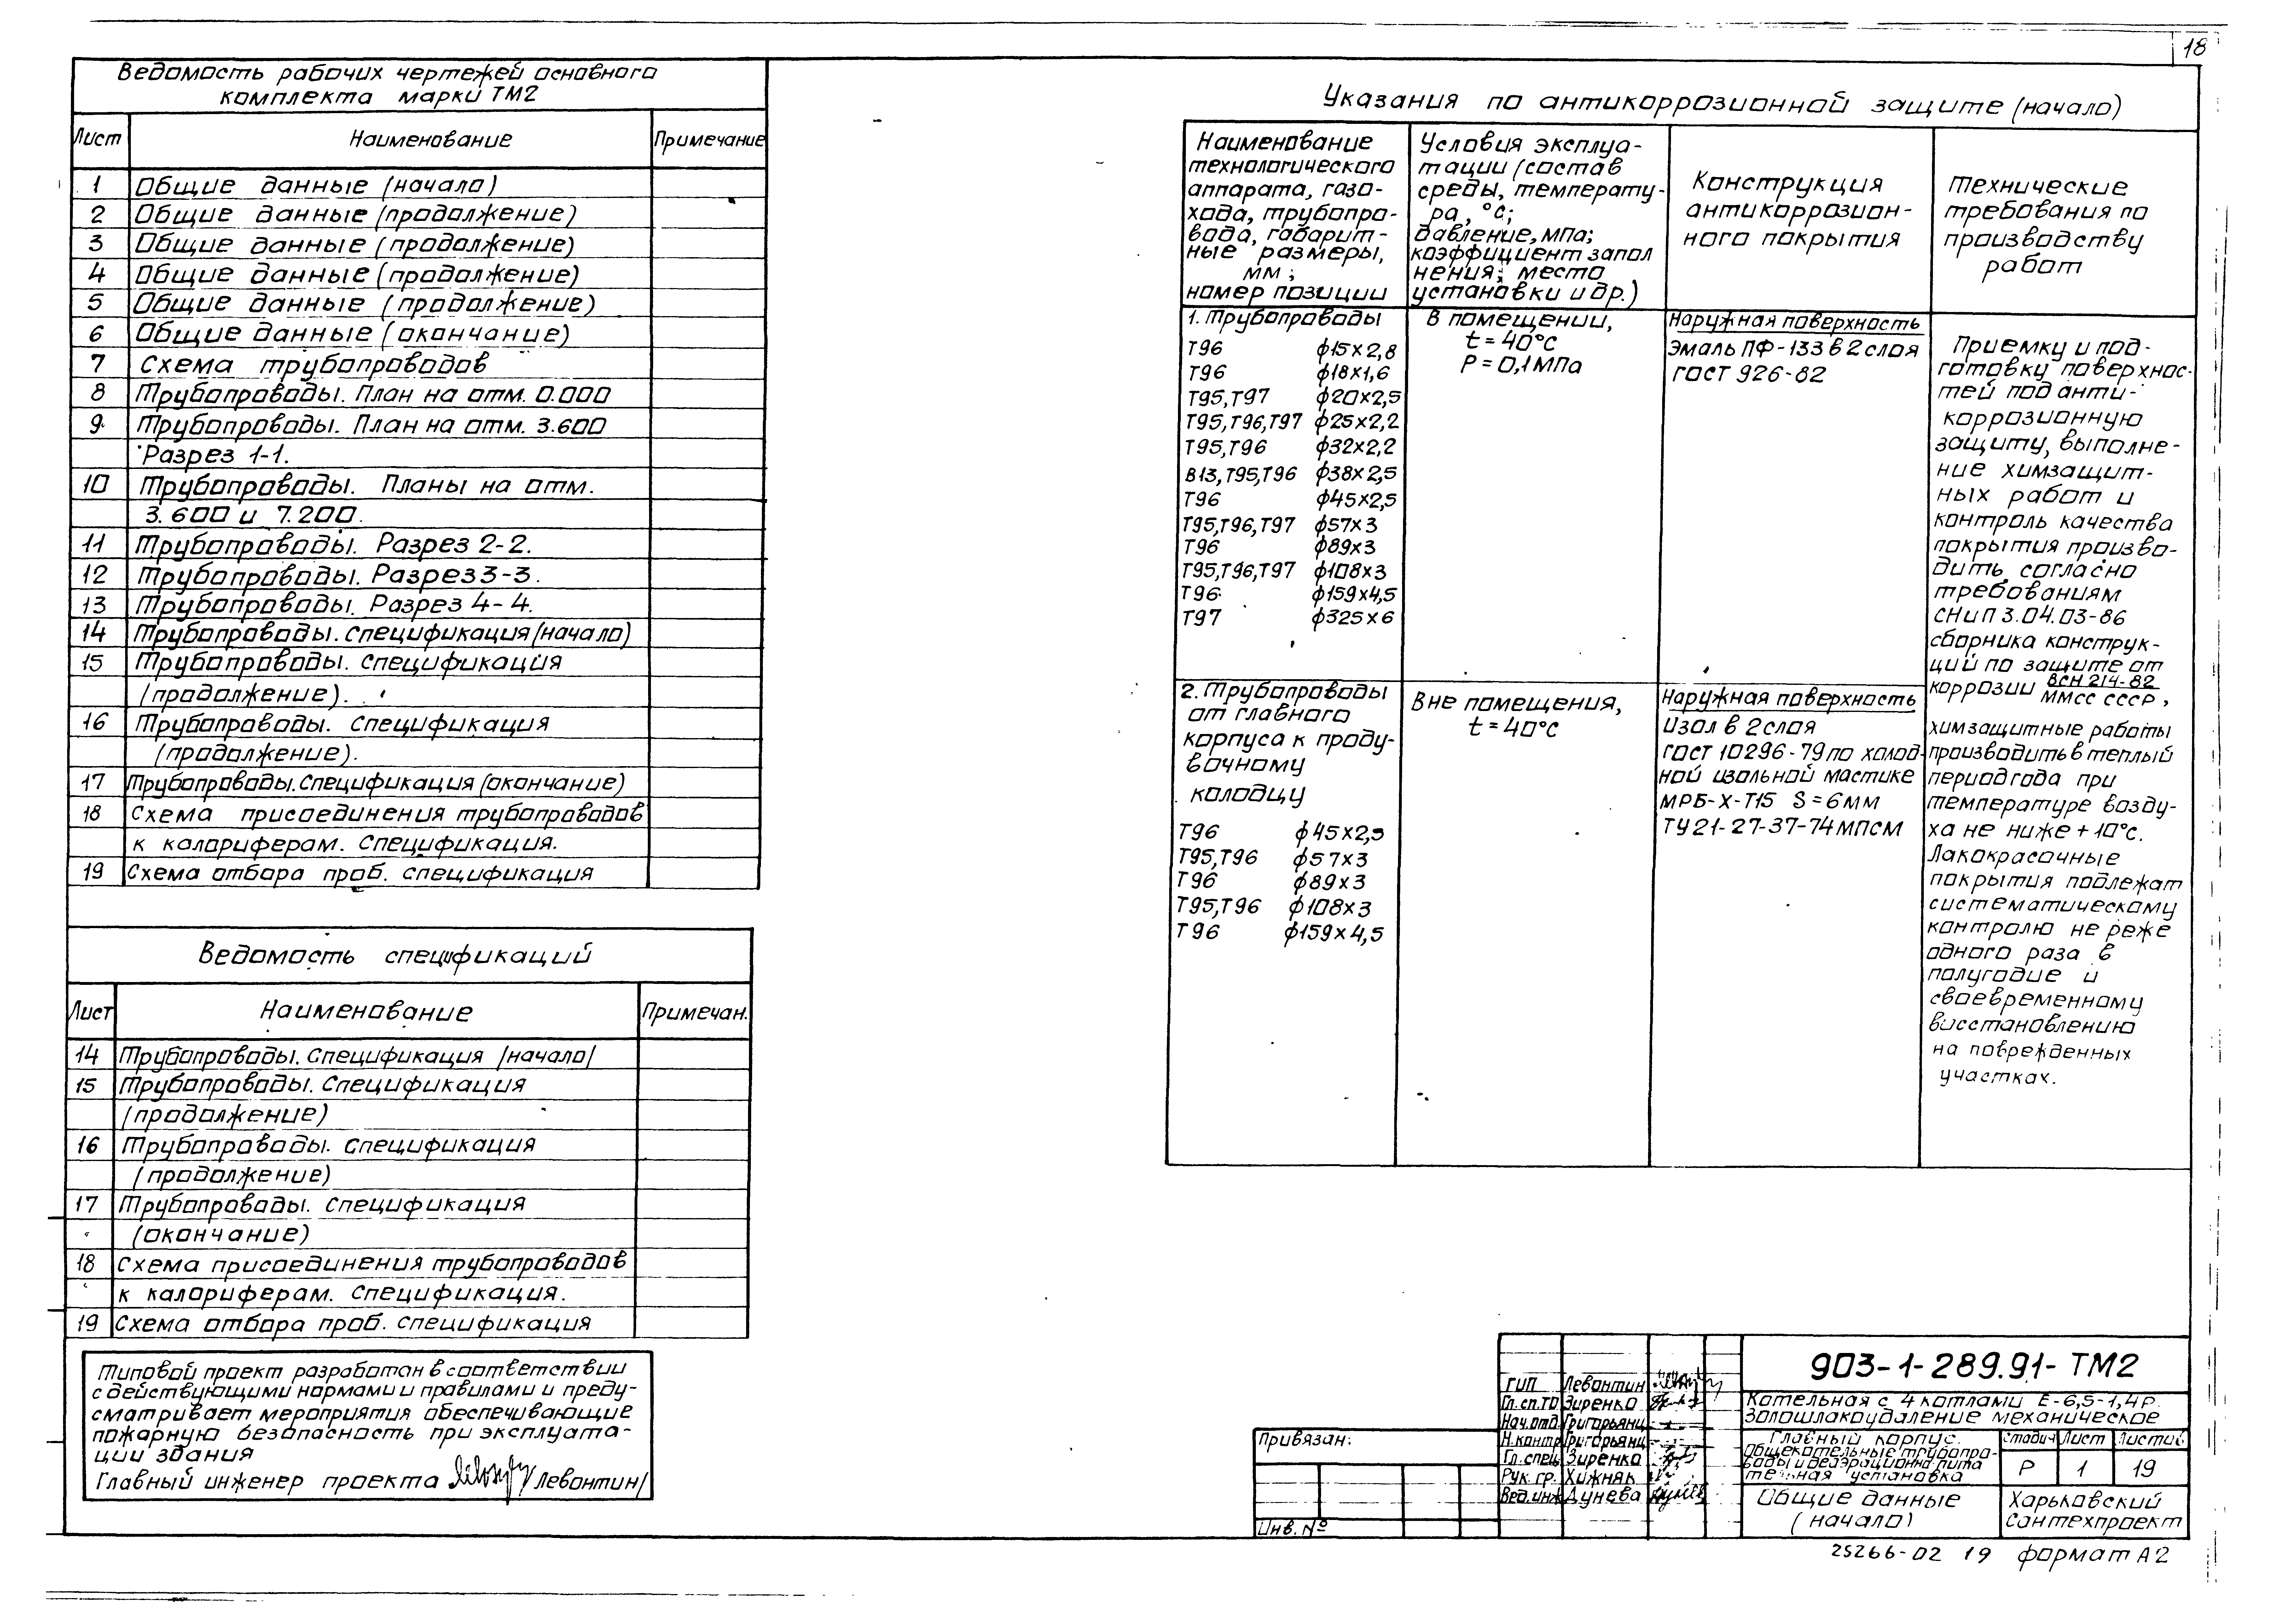 18
Ведомость рабочих чертежей основного
комплекта марки ТМ2
Лист Наименование Примечание
1 Общие данные (начало)
2 Общие данные (продолжение)
3 Общие данные (продолжение)
4 Общие данные (продолжение)
5 Общие данные (продолжение)
6 Общие данные (окончание)
7 Схема трубопроводов
8 Трубопроводы. План на отм. 0.000
9 Трубопроводы. План на отм. 3.600
Разрез 1-1.
10 Трубопроводы. Планы на отм.
3.600 и 7.200.
11 Трубопроводы. Разрез 2-2.
12 Трубопроводы. Разрез 3-3.
13 Трубопроводы. Разрез 4-4.
14 Трубопроводы. Спецификация (начало)
15 Трубопроводы. Спецификация
(продолжение).
16 Трубопроводы. Спецификация
(продолжение).
17 Трубопроводы. Спецификация (окончание)
18 Схема присоединения трубопроводов
к калориферам. Спецификация.
19 Схема отбора проб. Спецификация
Ведомость спецификаций
Лист Наименование Примечан.
14 Трубопроводы. Спецификация /начало/
15 Трубопроводы. Спецификация
(продолжение)
16 Трубопроводы. Спецификация
(продолжение)
17 Трубопроводы. Спецификация
(окончание)
18 Схема присоединения трубопроводов
к калориферам. Спецификация.
19 Схема отбора проб. Спецификация
Типовой проект разработан в соответствии
с действующими нормами и правилами и преду-
сматривает мероприятия обеспечивающие
пожарную безопасность при эксплуата-
ции здания
Главный инженер проекта Левонтин/
Указания по антикоррозионной защите (начало)
Наименование
технологического
аппарата, газо-
хода, трубопро-
вода, габарит-
ные размеры,
мм;
номер позиции
Условия эксплуа-
тации (состав
среды, температу-
ра, °С;
давление, МПа;
коэффициент запол
нения; место
установки и др.)
Конструкция
антикоррозион-
ного покрытия
Технические
требования по
производству
работ
1. Трубопроводы
Т96 ф15х2,8
Т96 ф18х1,6
Т95,Т97 ф20х2,5
Т95,Т96,Т97 ф25х2,2
Т95,Т96 ф32х2,2
В13,Т95,Т96 ф38х2,5
Т96 ф45х2,5
Т95,Т96,Т97 ф57х3
Т96 ф89х3
Т95,Т96,Т97 ф108х3
Т96 ф159х4,5
Т97 ф325х6
В помещении,
t = 40°С
Р = 0,1 МПа
Наружная поверхность
Эмаль ПФ-133 в 2 слоя
ГОСТ 926-82
2. Трубопроводы
от главного
корпуса к проду-
вочному
колодцу
Т96 ф45х2,5
Т95,Т96 ф57х3
Т96 ф89х3
Т95,Т96 ф108х3
Т96 ф159х4,5
Вне помещения,
t = 40°С
Наружная поверхность
Изол в 2 слоя
ГОСТ 10296-79 по холод-
ной изольной мастике
МРБ-Х-Т15 S = 6мм
ТУ21-27-37-74 МПСМ
Приемку и под-
готовку поверхнос-
тей под анти-
коррозионную
защиту, выполне-
ние химзащит-
ных работ и
контроль качества
покрытия произво-
дить согласно
требованиям
СНиП 3.04.03-86
сборника конструк-
ций по защите от
коррозии ВСН 214-82
ММСС СССР,
химзащитные работы
производить в теплый
период года при
температуре возду-
ха не ниже +10°С.
Лакокрасочные
покрытия подлежат
систематическому
контролю не реже
одного раза в
полугодие и
своевременному
восстановлению
на поврежденных
участках.
Привязан:
Инв. №
ГИП Левонтин
Гл.сп.ТО Зиренко
Нач.отд. Григорьянц
Н.контр Григорьянц
Гл.спец. Зиренко
Рук. гр. Хижняк
Вед.инж Дунева
903-1-289.91-ТМ2
Котельная с 4 котлами Е-6,5-1,4Р.
Золошлакоудаление механическое
Главный корпус.
Общекотельные трубопро-
воды и деаэрационно пита
тельная установка
Стадия Лист Листов
Р 1 19
Общие данные
(начало)
Харьковский
Сантехпроект
25266-02 19 формат А2